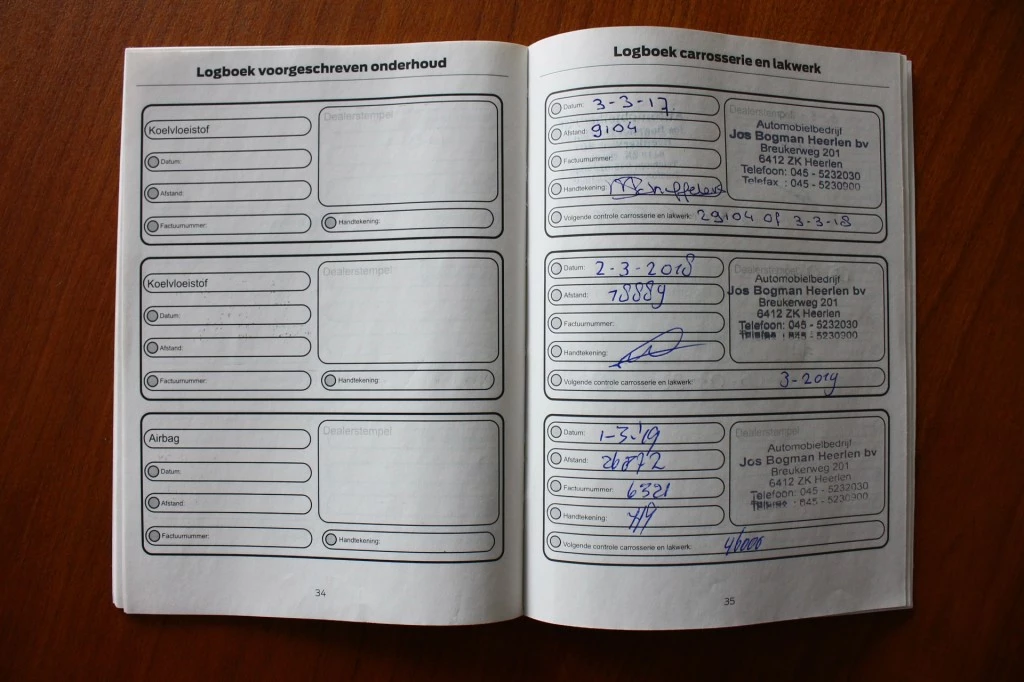 Logboek voorgeschreven onderhoud
Koelvloeistof
Dealerstempel
Datum:
Afstand:
Factuurnummer:
Handtekening:
Koelvloeistof
Dealerstempel
Datum:
Afstand:
Factuurnummer:
Handtekening:
Airbag
Dealerstempel
Datum:
Afstand:
Factuurnummer:
Handtekening:
34
Logboek carrosserie en lakwerk
Datum: 3-3-17
Afstand: 9104
Factuurnummer:
Handtekening:
Dealerstempel
Automobielbedrijf
Jos Bogman Heerlen bv
Breukerweg 201
6412 ZK Heerlen
Telefoon: 045 - 5232030
Telefax : 045 - 5230900
Volgende controle carrosserie en lakwerk: 29104 of 3-3-18
Datum: 2-3-2018
Afstand: 18889
Factuurnummer:
Handtekening:
Dealerstempel
Automobielbedrijf
Jos Bogman Heerlen bv
Breukerweg 201
6412 ZK Heerlen
Telefoon: 045 - 5232030
Telefax : 045 - 5230900
Volgende controle carrosserie en lakwerk: 3-2019
Datum: 1-3-'19
Afstand: 26872
Factuurnummer: 6321
Handtekening:
Dealerstempel
Automobielbedrijf
Jos Bogman Heerlen bv
Breukerweg 201
6412 ZK Heerlen
Telefoon: 045 - 5232030
Telefax : 045 - 5230900
Volgende controle carrosserie en lakwerk: 46000
35